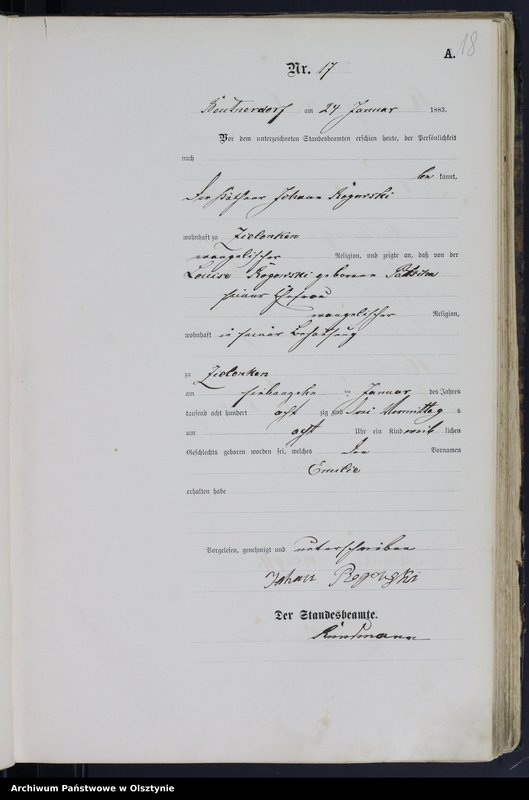 18
A.
Nr. 17
Beutnerdorf am 24 Januar 1883.
Vor dem unterzeichneten Standesbeamten erschien heute, der Persönlichkeit
nach
be kannt,
Der Käthner Johann Rogowski
wohnhaft zu Zielonken
evangelischer Religion, und zeigte an, daß von der
Louise Rogowski geborene
seiner Ehefrau
evangelischer Religion,
wohnhaft in seiner Behausung
zu Zielonken
am siebenzehn ten Januar des Jahres
tausend acht hundert acht zig und drei Vormittag s
um acht Uhr ein Kind weib lichen
Geschlechts geboren worden sei, welches den Vornamen
Emilie
erhalten habe
Vorgelesen, genehmigt und unterschrieben
Johan Rogowski
Der Standesbeamte.
Archiwum Państwowe w Olsztynie